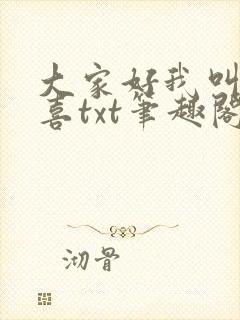 大家好我叫
喜txt笔趣阁
沏骨